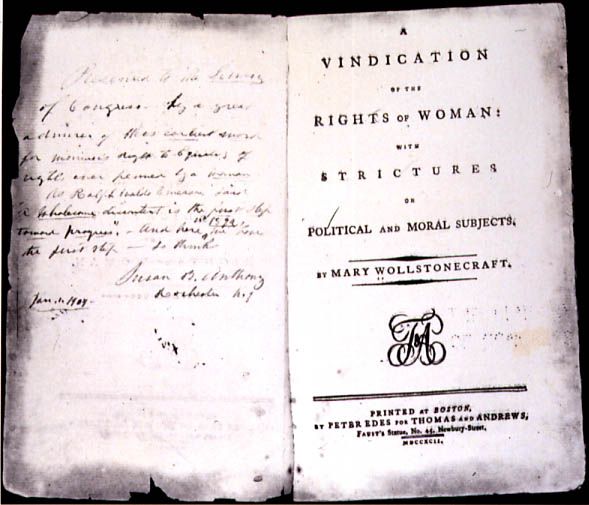 Presented to the Library
of Congress by a great
admirer of this earliest word
for woman's right to Equality of
rights ever penned by a woman
As Ralph Waldo Emerson said
"A wholesome discontent is the first step
toward progress". - And here we have
the first step - so think
Susan B. Anthony
Rochester N.Y
Jan. 1. 1904
A
VINDICATION
OF THE
RIGHTS OF WOMAN:
WITH
STRICTURES
ON
POLITICAL AND MORAL SUBJECTS.
BY MARY WOLLSTONECRAFT.
T&A
PRINTED AT BOSTON,
BY PETER EDES FOR THOMAS AND ANDREWS,
FAUST'S Statue, No. 45, Newbury-Street,
MDCCXCII.